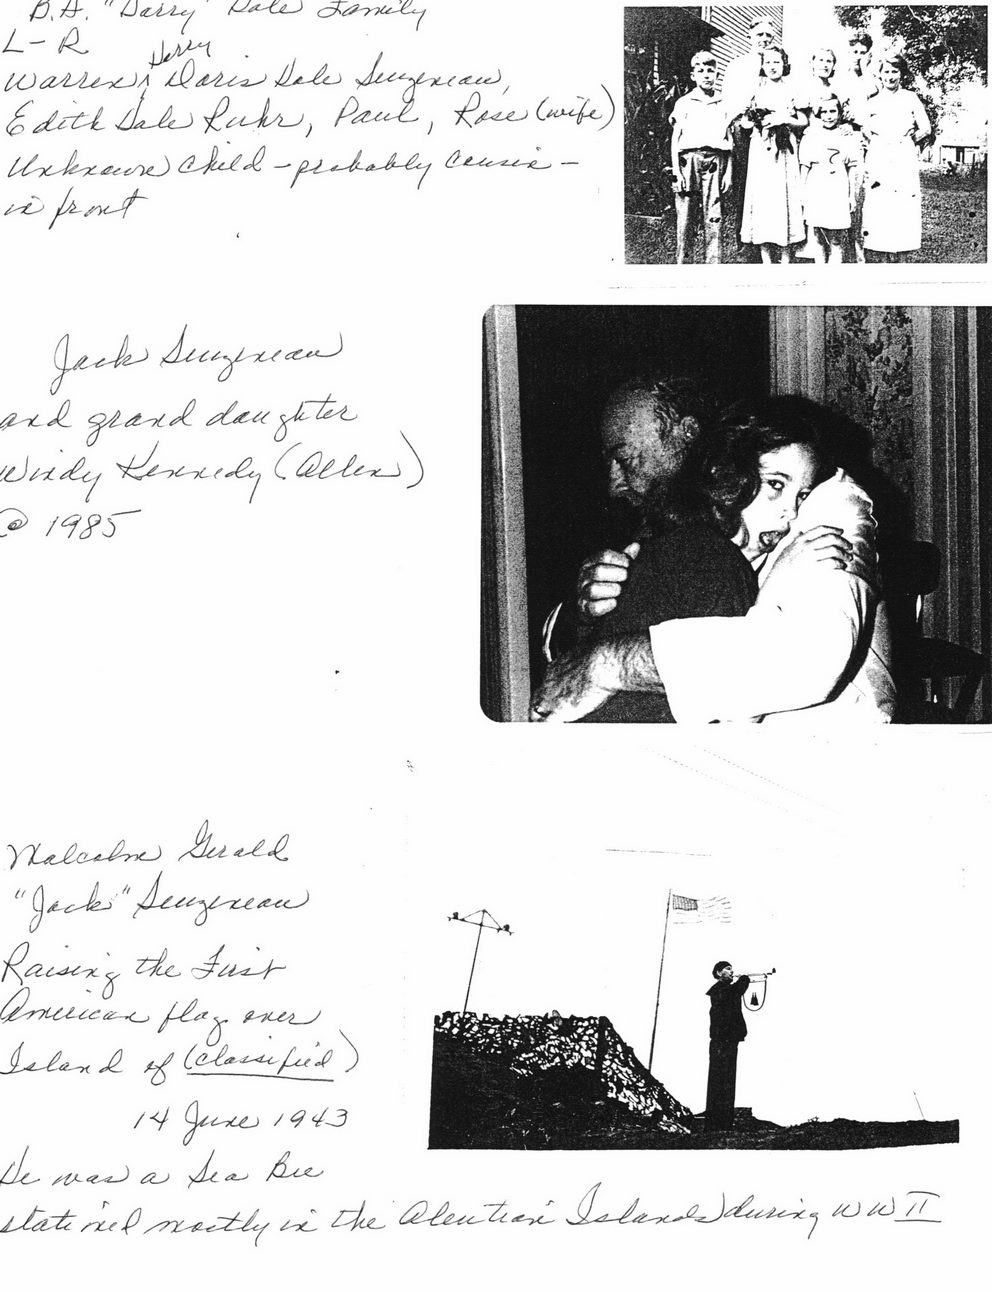 B.H. "Darry" Dale Family
L-R
Warren, ^Darry Doris Dale Senzeneau,
Edith Dale Ruhr, Paul, Rose (wife)
Unknown child - probably cousin -
in front
Jack Senzeneau
and grand daughter
Windy Kennedy (Allen)
@ 1985
Malcolm Gerald
"Jack" Senzeneau
Raising the First
American flag over
Island of (classified)
14 June 1943
He was a Sea Bee
stationed mostly in the Aleutian Islands during WW II